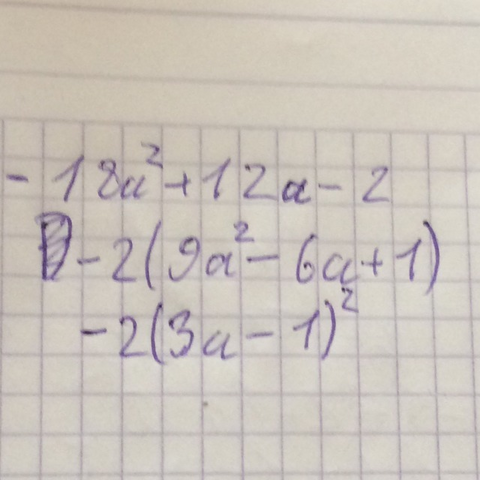 - 18a² + 12a - 2
- 2(9a² - 6a + 1)
- 2(3a - 1)²